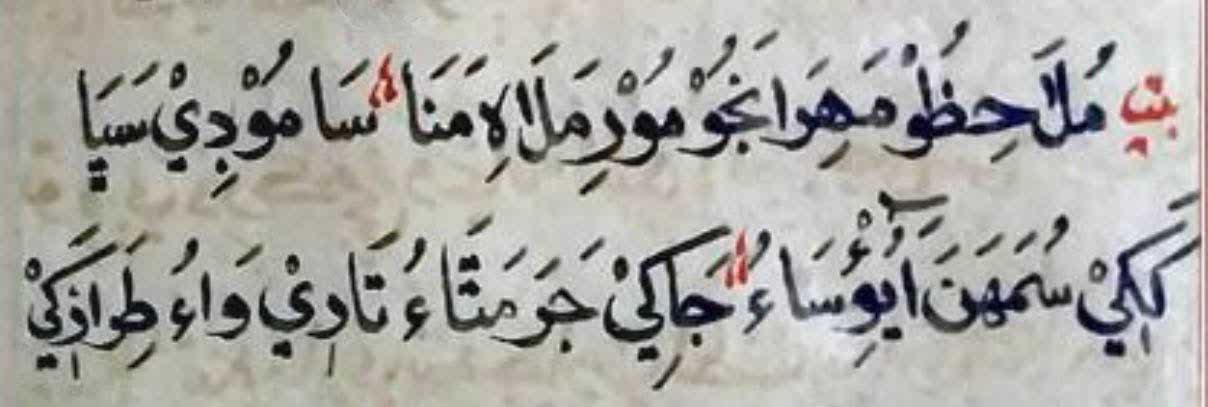 بيت مُلَاحِظُوْ مَهِرَا نَجُوْ مُوْرِ مَلَاهِ مَنَا سَا مُوْدِيْ سَيَا
كَكِيْ سُمَهَنَ آيُؤْسَاءُ جَاكِيْ جَرَ مَتَاءُ تَادِيْ وَاءُ